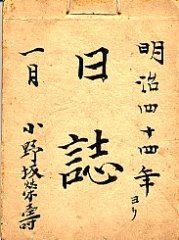 明治四十四年ヨリ
日誌
一月 小野城榮壽